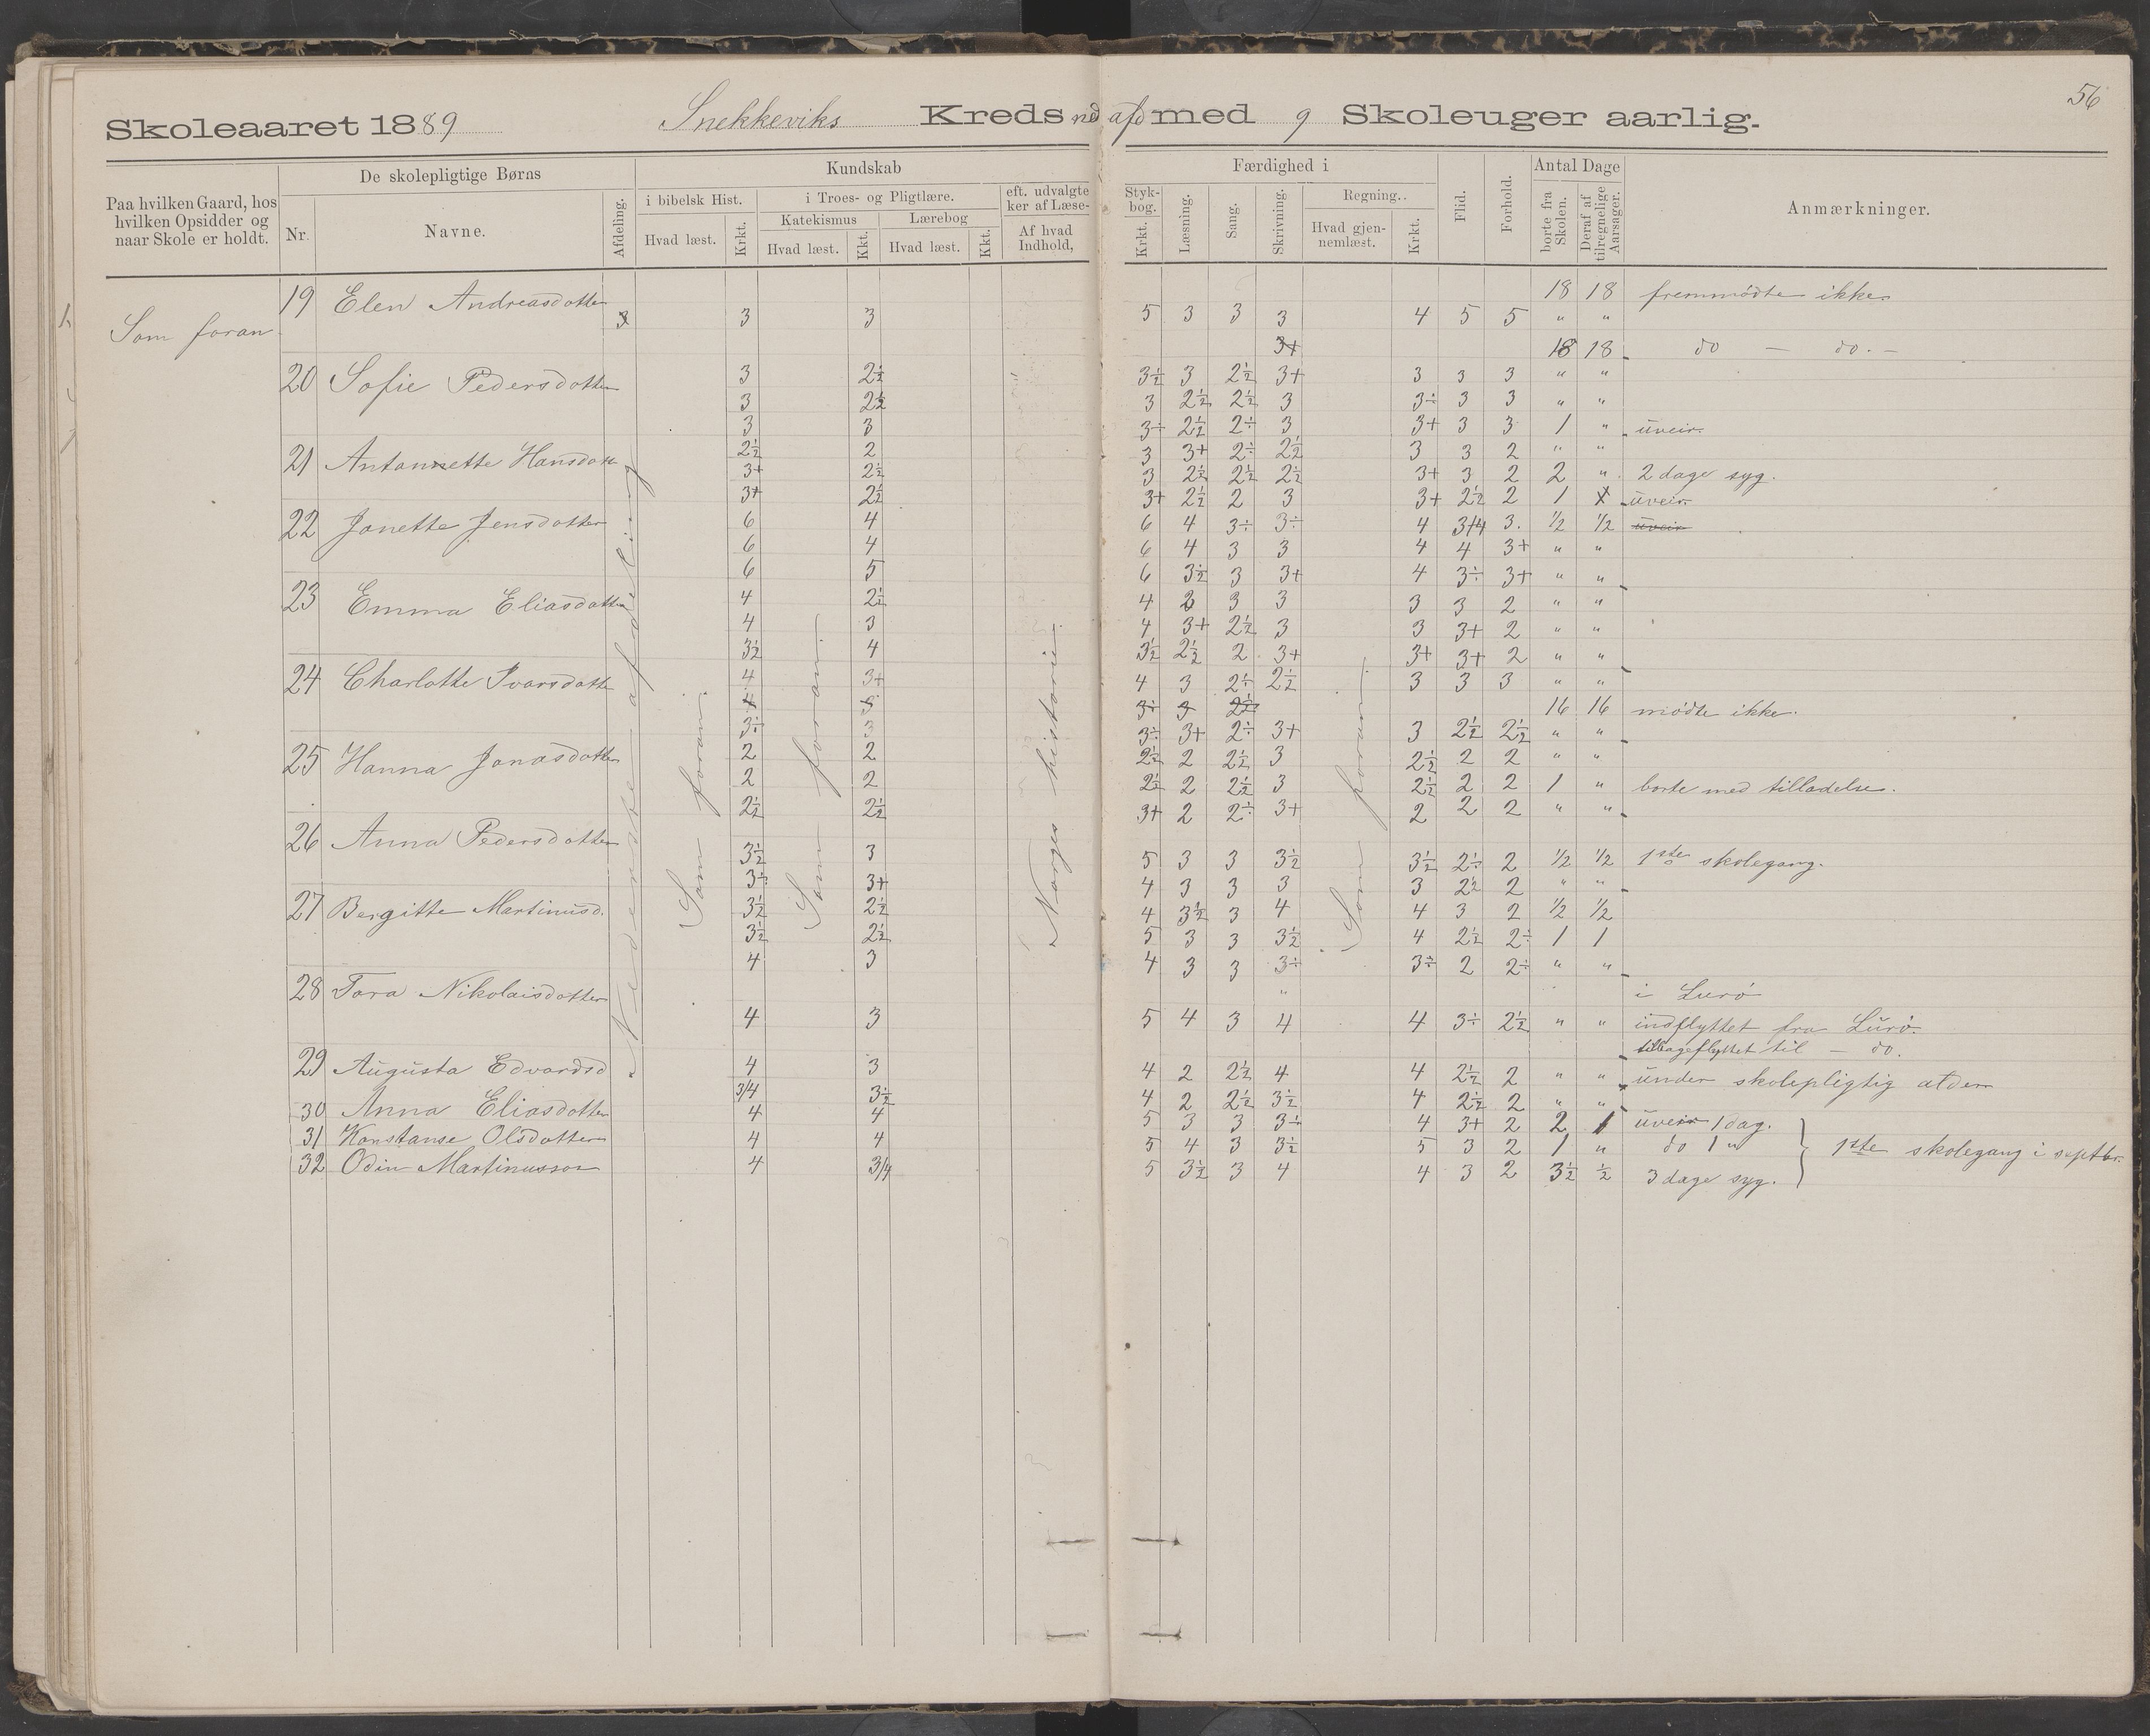 56
Skoleaaret 1889 Snekkeviks Kreds ned afd med 9 Skoleuger aarlig.
Paa hvilken Gaard, hos hvilken Opsidder og naar Skole er holdt.
De skolepligtige Børns
Nr. Navne. Afdeling.
Kundskab
i bibelsk Hist. i Troes- og Pligtlære. eft. udvalgte
ker af Læse-
Katekismus Lærebog
Hvad læst. Krkt. Hvad læst. Kkt. Hvad læst. Kkt. Af hvad Indhold,
Færdighed i
Styk-
bog. Krkt. Læsning. Sang. Skrivning. Regning.. Hvad gjen-
nemlæst. Krkt. Flid. Forhold.
Antal Dage
borte fra Skolen. Deraf af tilregnelige Aarsager.
Anmærkninger.
Som foran
Nedenske afdeling
Som foran.
Som foran.
Norges historie
Som foran.
19 Elen Andreasdotter 18 18 fremmødte ikke
3 3 3 5 3 3 3 4 5 5 " "
3+ 18 18 do — do. —
20 Sofie Pedersdotter 3 2½ 3½ 3 2½ 3+ 3 3 3 " "
3 2½ 3 2½ 2½ 3 3÷ 3 3 " "
3 3 3÷ 2½ 2÷ 3 3+ 3 3 1 " uveir.
21 Antonette Hansdott 2½ 2 3 3+ 2÷ 2½ 3 3 2 " "
3+ 2½ 3 2½ 2½ 2½ 3+ 3 2 2 " 2 dage syg.
3+ 2½ 3+ 2½ 2 3 3+ 2½ 2 1 uveir.
22 Jonette Jensdotter 6 4 6 4 3÷ 3÷ 4 3/4 3. ½ ½ uveir
6 4 6 4 3 3 4 4 3+ " "
6 5 6 3½ 3 3+ 4 3÷ 3+ " "
23 Emma Eliasdotter 4 2½ 4 2 3 3 3 3 2 " "
4 3 4 3+ 2½ 3 3 3+ 2 " "
3½ 4 3½ 2½ 2 3+ 3+ 3+ 2 " "
24 Charlotte Ivarsdotter 4 3+ 4 3 2÷ 2½ 3 3 3 " "
4 3 3÷ 3 2½ 16 16 mødte ikke.
3÷ 3 3÷ 3+ 2÷ 3+ 3 2½ 2½ " "
25 Hanna Jonasdotter 2 2 2½ 2 2½ 3 2½ 2 2 " "
2 2 2½ 2 2½ 3 2½ 2 2 1 " borte med tilladelse.
2½ 2½ 3+ 2 2÷ 3+ 2 2 2 " "
26 Anna Pedersdotter
3½ 3 5 3 3 3½ 3½ 2÷ 2 ½ ½ 1ste skolegang.
3÷ 3+ 4 3 3 3 3 2½ 2 " "
27 Bergitte Martinusd. 3½ 2½ 4 3½ 3 4 4 3 2 ½ ½
3½ 2½ 5 3 3 3½ 4 2½ 2÷ 1 1
4 3 4 3 3 3÷ 3÷ 2 2÷ " "
28 Tora Nikolaisdotter " i Lurø
4 3 5 4 3 4 4 3÷ 2½ " " indflyttet fra Lurø.
tilbageflyttet til — do.
29 Augusta Edvardsd 4 3 4 2 2½ 4 4 2½ 2 " " under skolepligtig alder
3/4 3½ 4 2 2½ 3½ 4 2½ 2 " "
30 Anna Eliasdotter 4 4 5 3 3 3÷ 4 3+ 2 2 1 uveir 1 dag.
31 Konstanse Olsdotter 4 4 5 4 3 3½ 5 3 2 1 " do 1 " 1ste skolegang i septbr.
32 Odin Martinusson 4 3/4 5 3½ 3 4 4 3 2 3½ ½ 3 dage syg.